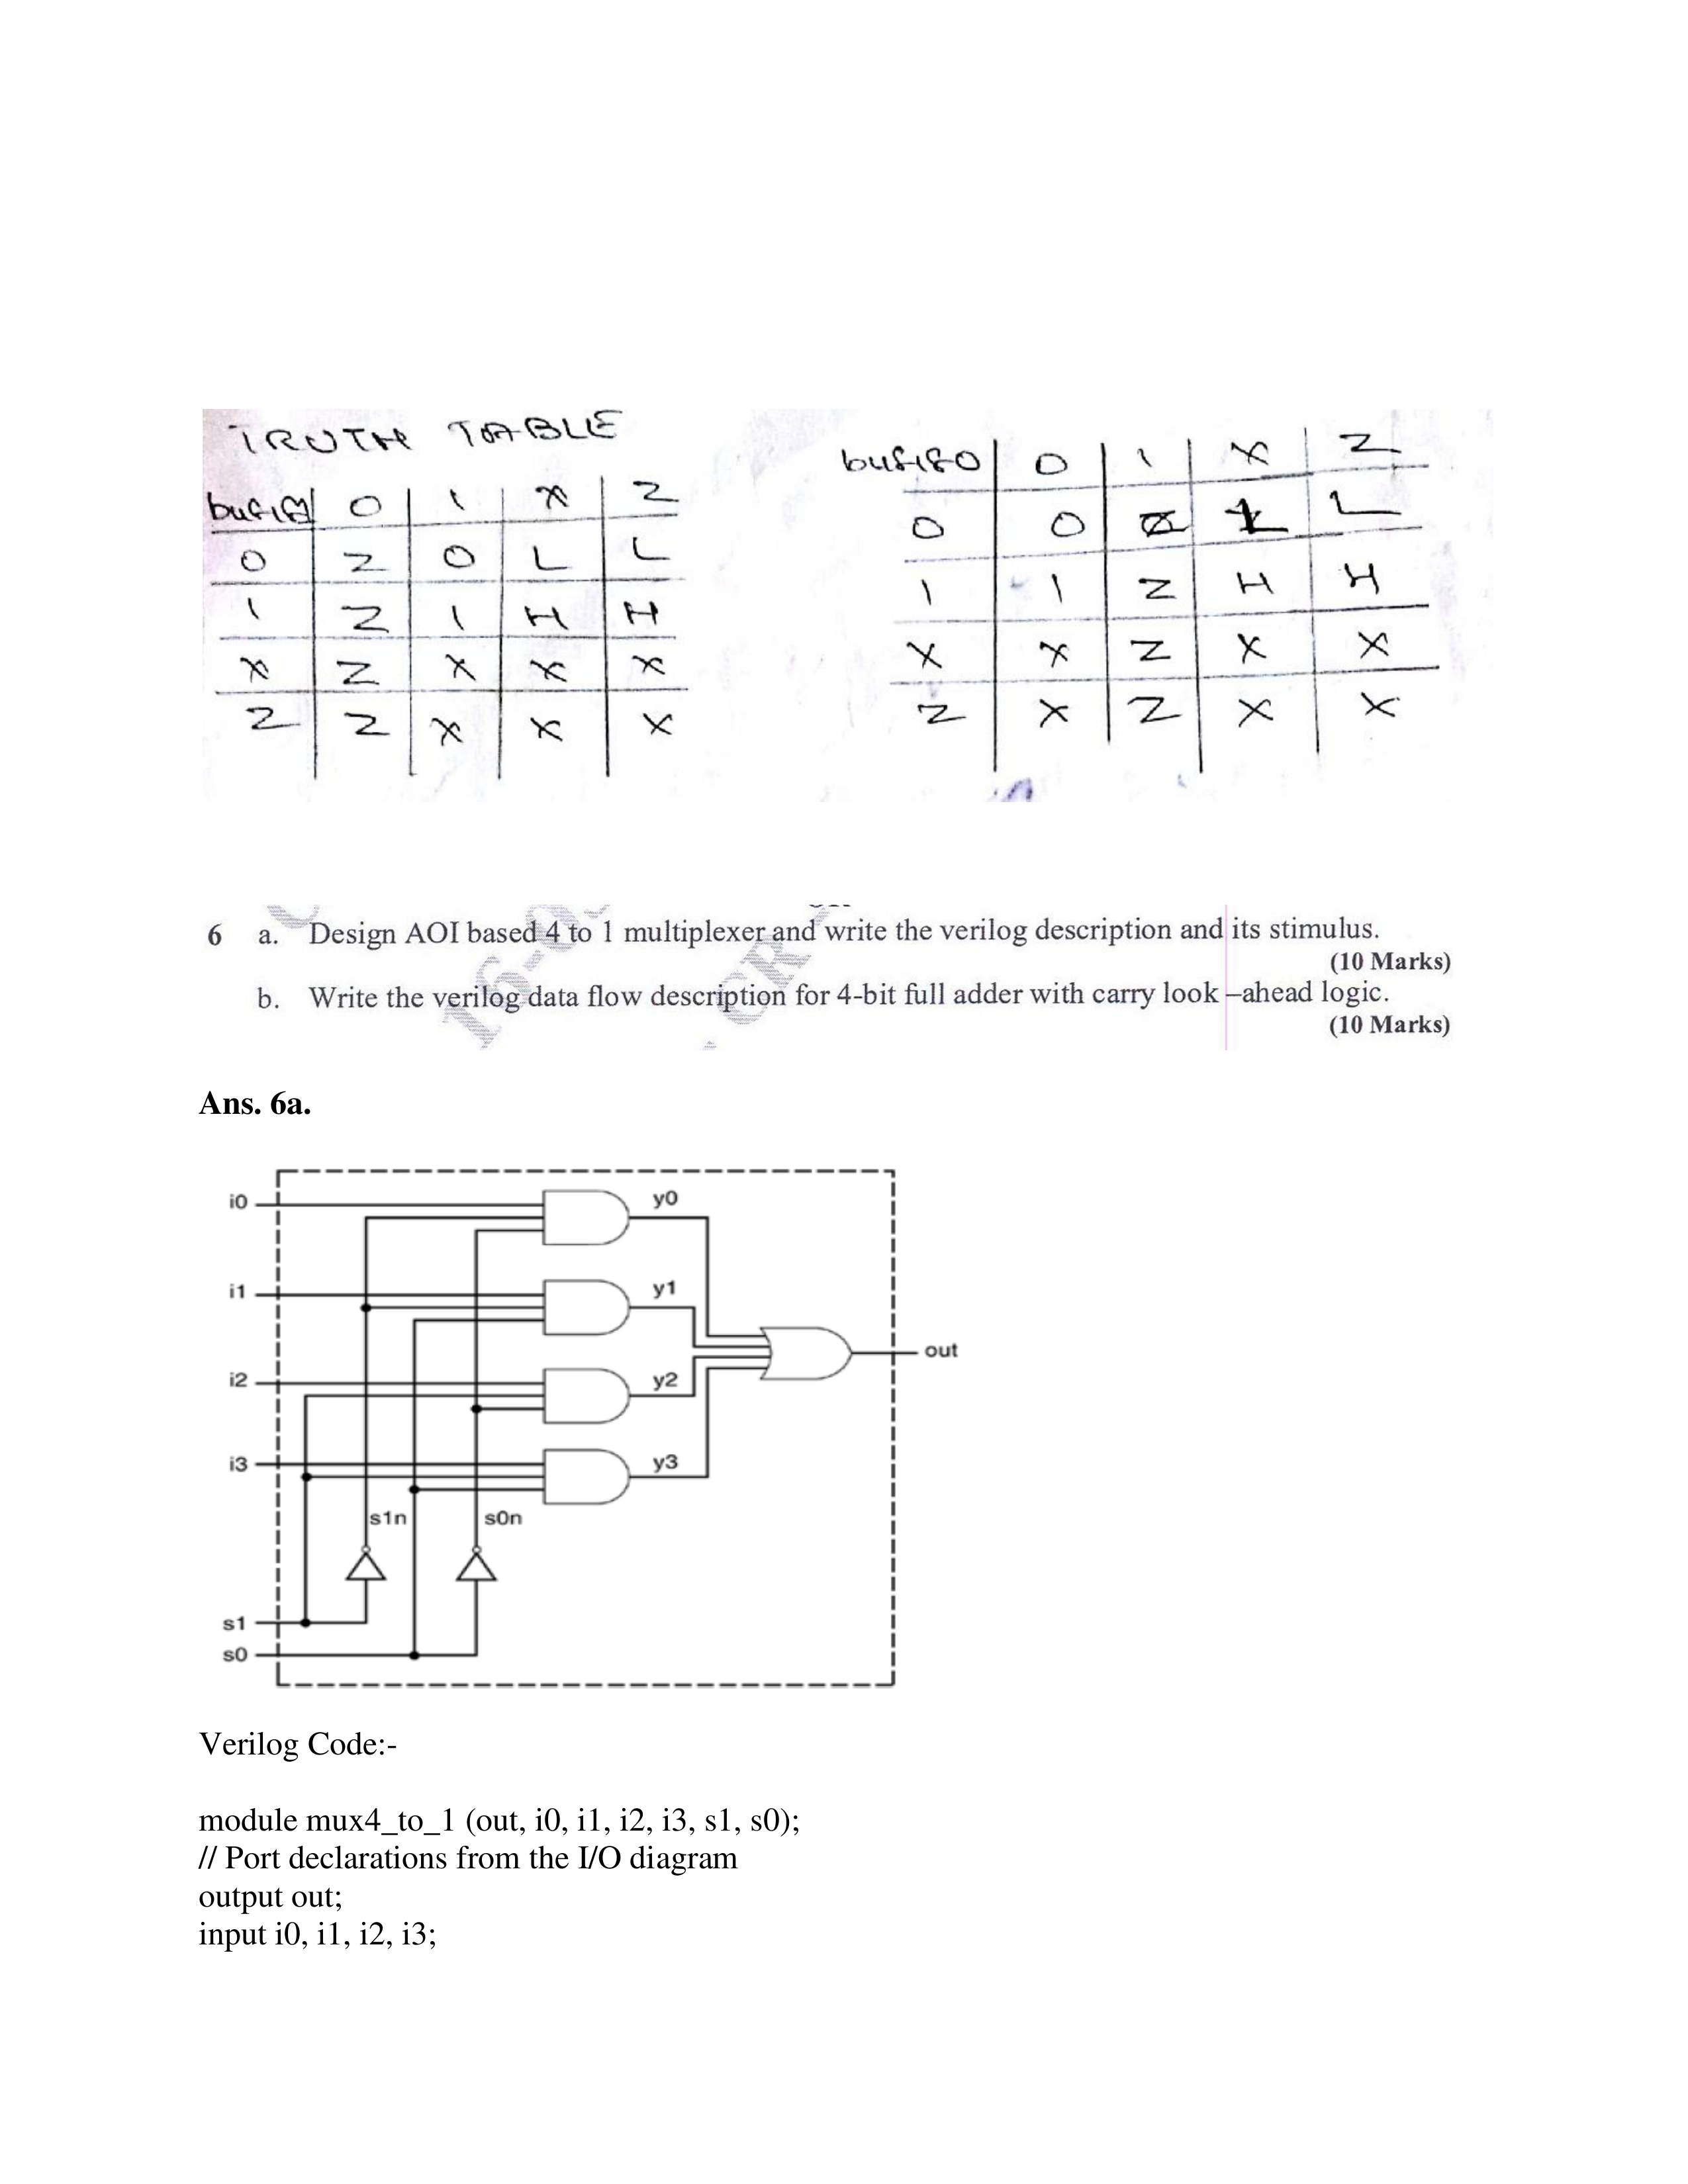 TRUTH TABLE
bufif1 0 1 X Z
0 Z 0 L L
1 Z 1 H H
X Z X X X
Z Z X X X
bufif0 0 1 X Z
0 0 Z L L
1 1 Z H H
X X Z X X
Z X Z X X
6 a. Design AOI based 4 to 1 multiplexer and write the verilog description and its stimulus.
(10 Marks)
b. Write the verilog data flow description for 4-bit full adder with carry look –ahead logic.
(10 Marks)
Ans. 6a.
i0 y0
i1 y1
out
i2 y2
i3 y3
s1n s0n
s1
s0
Verilog Code:-
module mux4_to_1 (out, i0, i1, i2, i3, s1, s0);
// Port declarations from the I/O diagram
output out;
input i0, i1, i2, i3;